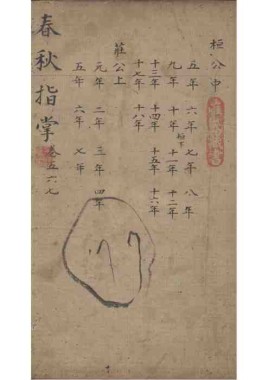 桓公中
五年 六年 七年 八年
九年 十年 十一年 十二年
十三年 十四年 十五年 十六年
十七年 十八年
莊公上
元年 二年 三年 四年
五年 六年 七年
春秋指掌 卷五六七